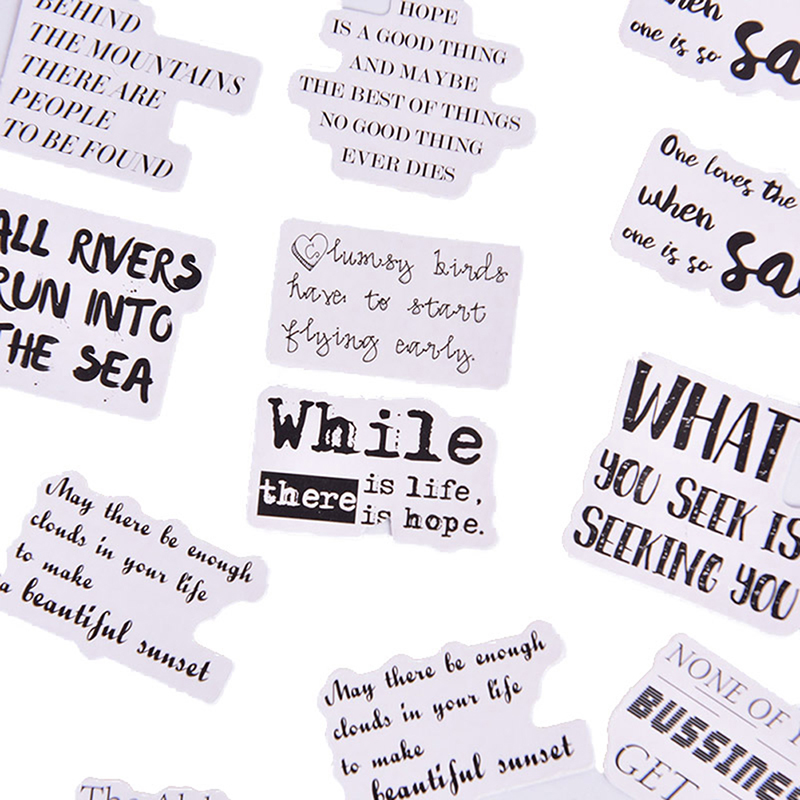 BEHIND
THE MOUNTAINS
THERE ARE
PEOPLE
TO BE FOUND
HOPE
IS A GOOD THING
AND MAYBE
THE BEST OF THINGS
NO GOOD THING
EVER DIES
when
one is so sa
One loves the
when
one is so sa
ALL RIVERS
RUN INTO
THE SEA
Clumsy birds
have to start
flying early.
While
there is life,
is hope.
WHAT
YOU SEEK IS
SEEKING YOU
May there be enough
clouds in your life
to make
a beautiful sunset
May there be enough
clouds in your life
to make
beautiful sunset
NONE OF
BUSSINE
GET
The